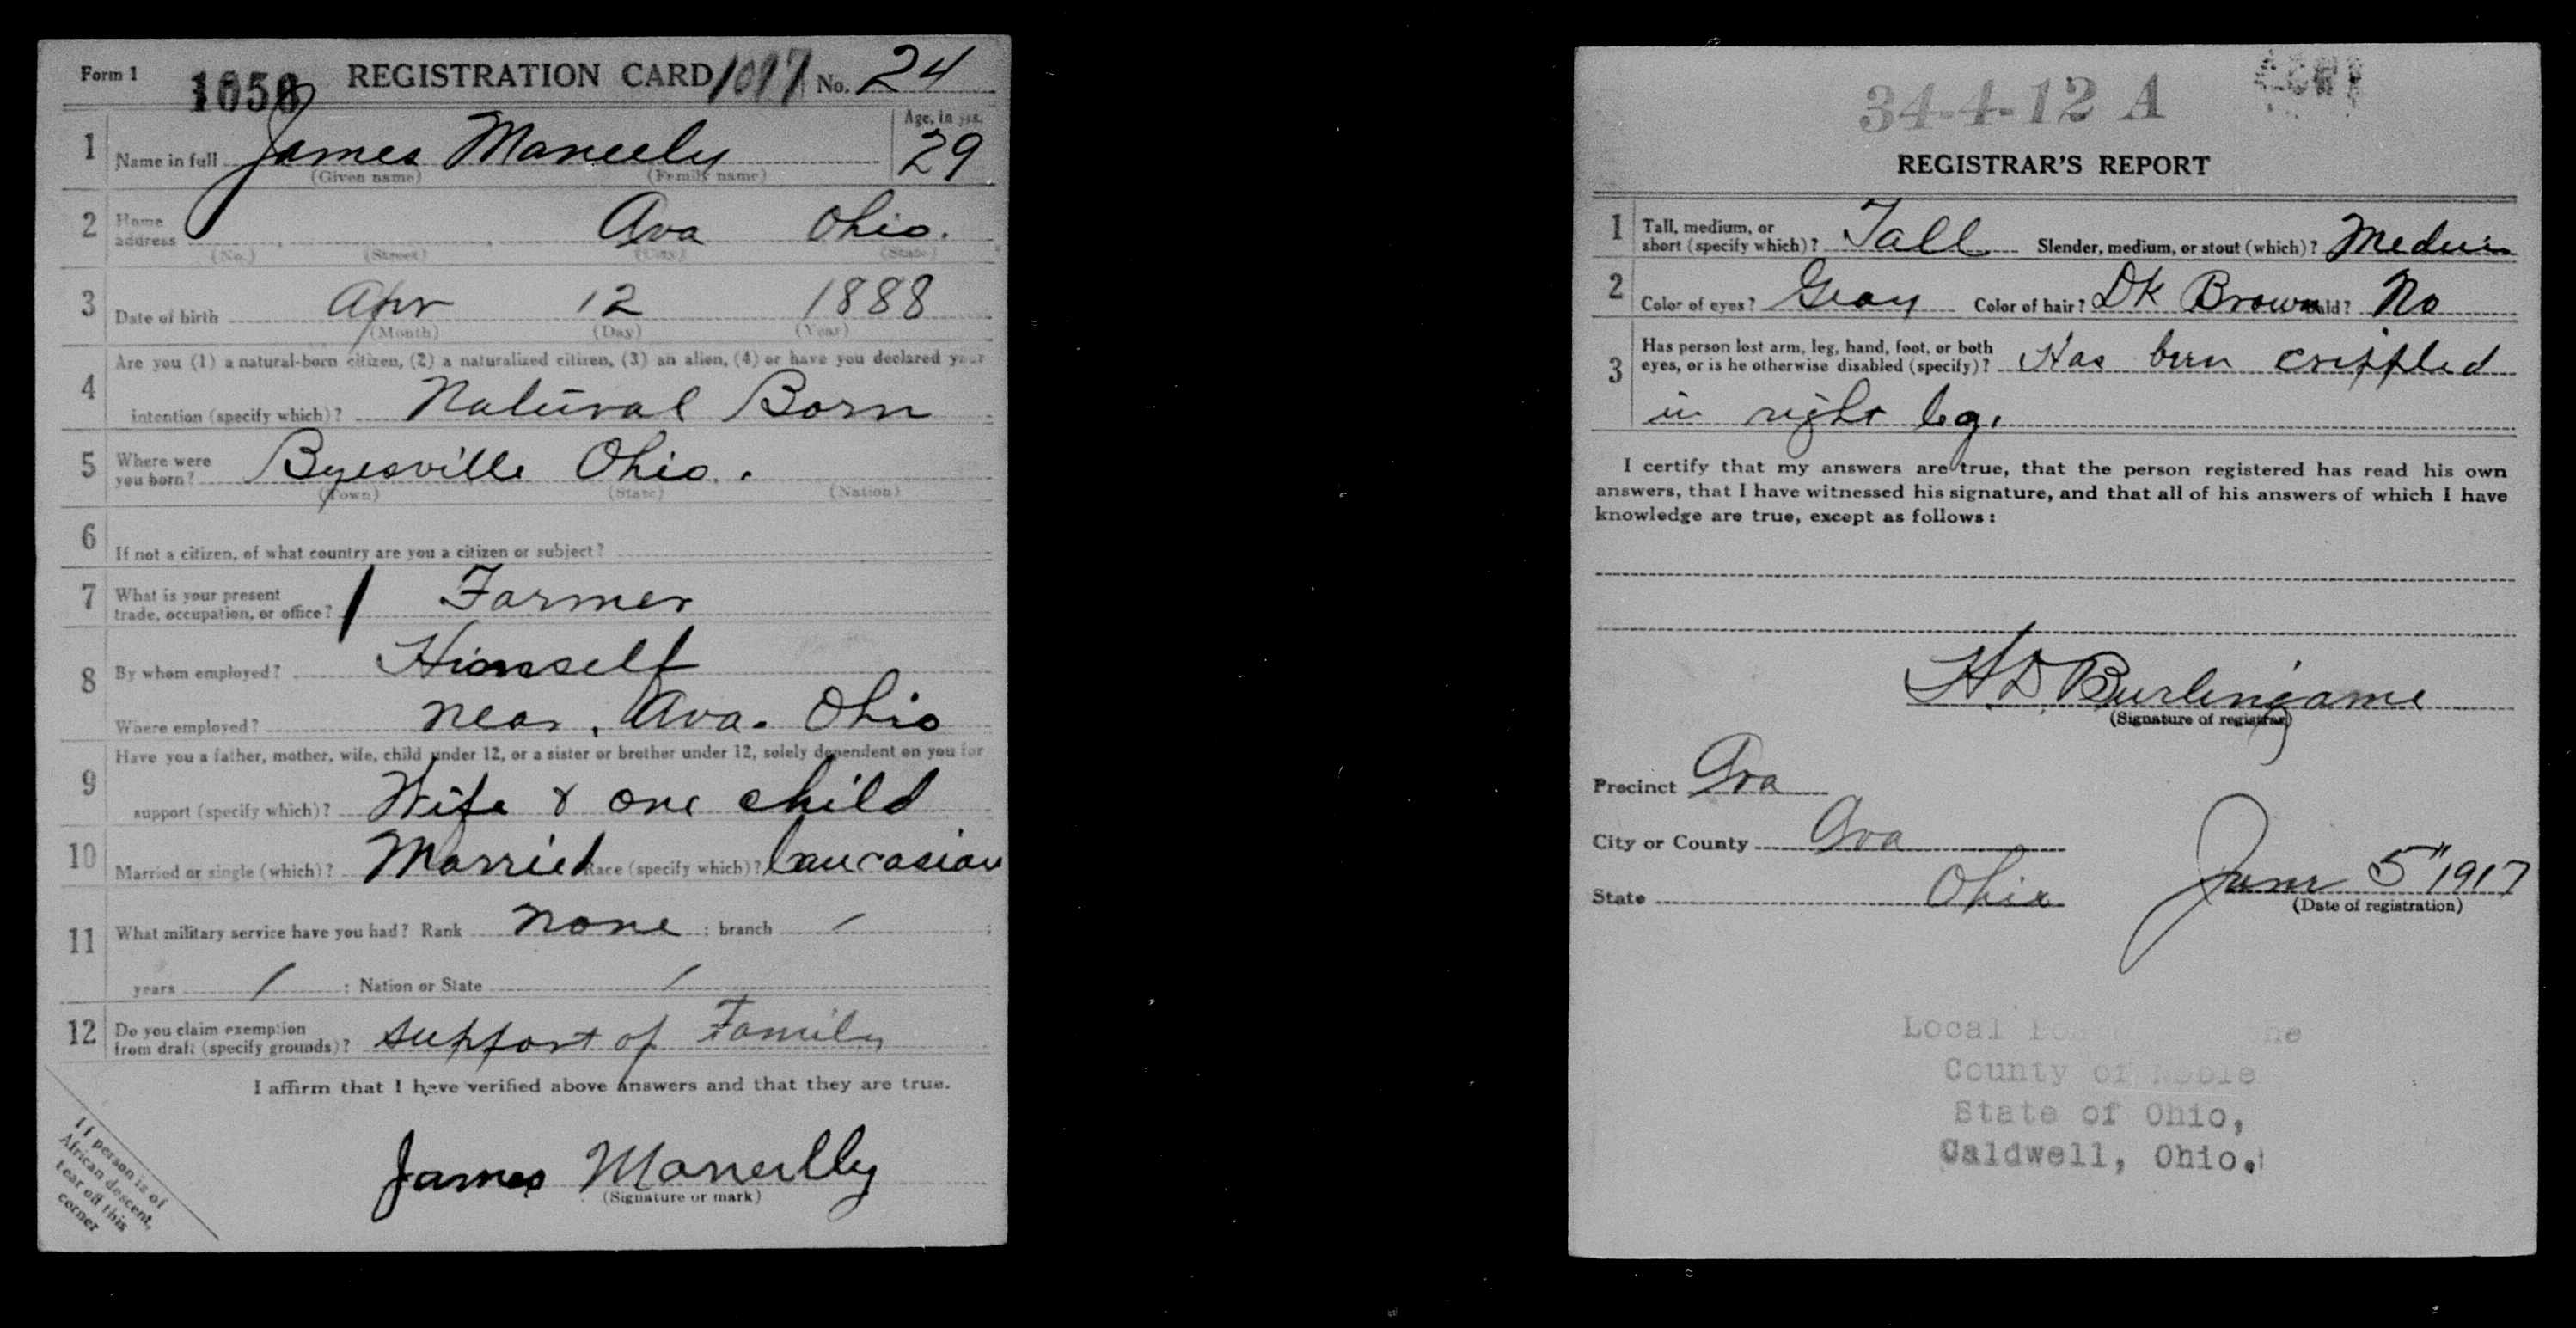 Form 1 REGISTRATION CARD 1097 No. 24
1 Name in full James Maneely Age, in yrs. 29
(Given name) (Family name)
2 Home address Ava Ohio.
(No.) (Street) (City) (State)
3 Date of birth Apr 12 1888
(Month) (Day) (Year)
4 Are you (1) a natural-born citizen, (2) a naturalized citizen, (3) an alien, (4) or have you declared your
intention (specify which)? Natural Born
5 Where were you born? Byesville Ohio.
(Town) (State) (Nation)
6 If not a citizen, of what country are you a citizen or subject?
7 What is your present
trade, occupation, or office? Farmer
8 By whom employed? Himself
Where employed? near, Ava. Ohio
9 Have you a father, mother, wife, child under 12, or a sister or brother under 12, solely dependent on you for
support (specify which)? Wife & one child
10 Married or single (which)? Married Race (specify which)? Caucasian
11 What military service have you had? Rank none ; branch /
years / ; Nation or State /
12 Do you claim exemption
from draft (specify grounds)? support of Family
I affirm that I have verified above answers and that they are true.
James Maneilly
(Signature or mark)
If person is of
African descent,
tear off this
corner
34-4-12 A
REGISTRAR'S REPORT
1 Tall, medium, or
short (specify which)? Tall Slender, medium, or stout (which)? Medium
2 Color of eyes? Gray Color of hair? DK Brown Bald? No
3 Has person lost arm, leg, hand, foot, or both
eyes, or is he otherwise disabled (specify)? Has been crippled
in right leg.
I certify that my answers are true, that the person registered has read his own
answers, that I have witnessed his signature, and that all of his answers of which I have
knowledge are true, except as follows:
H D Burlingame
(Signature of registrar)
Precinct Ava
City or County Ava
State Ohio June 5" 1917
(Date of registration)
Local
County of Noble
State of Ohio,
Caldwell, Ohio.